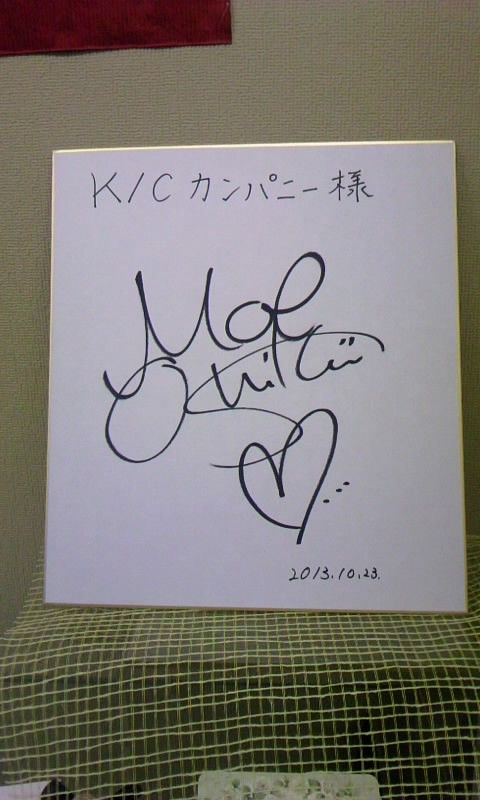 K/C カンパニー様
Moe
Oshikiri
2013.10.23.